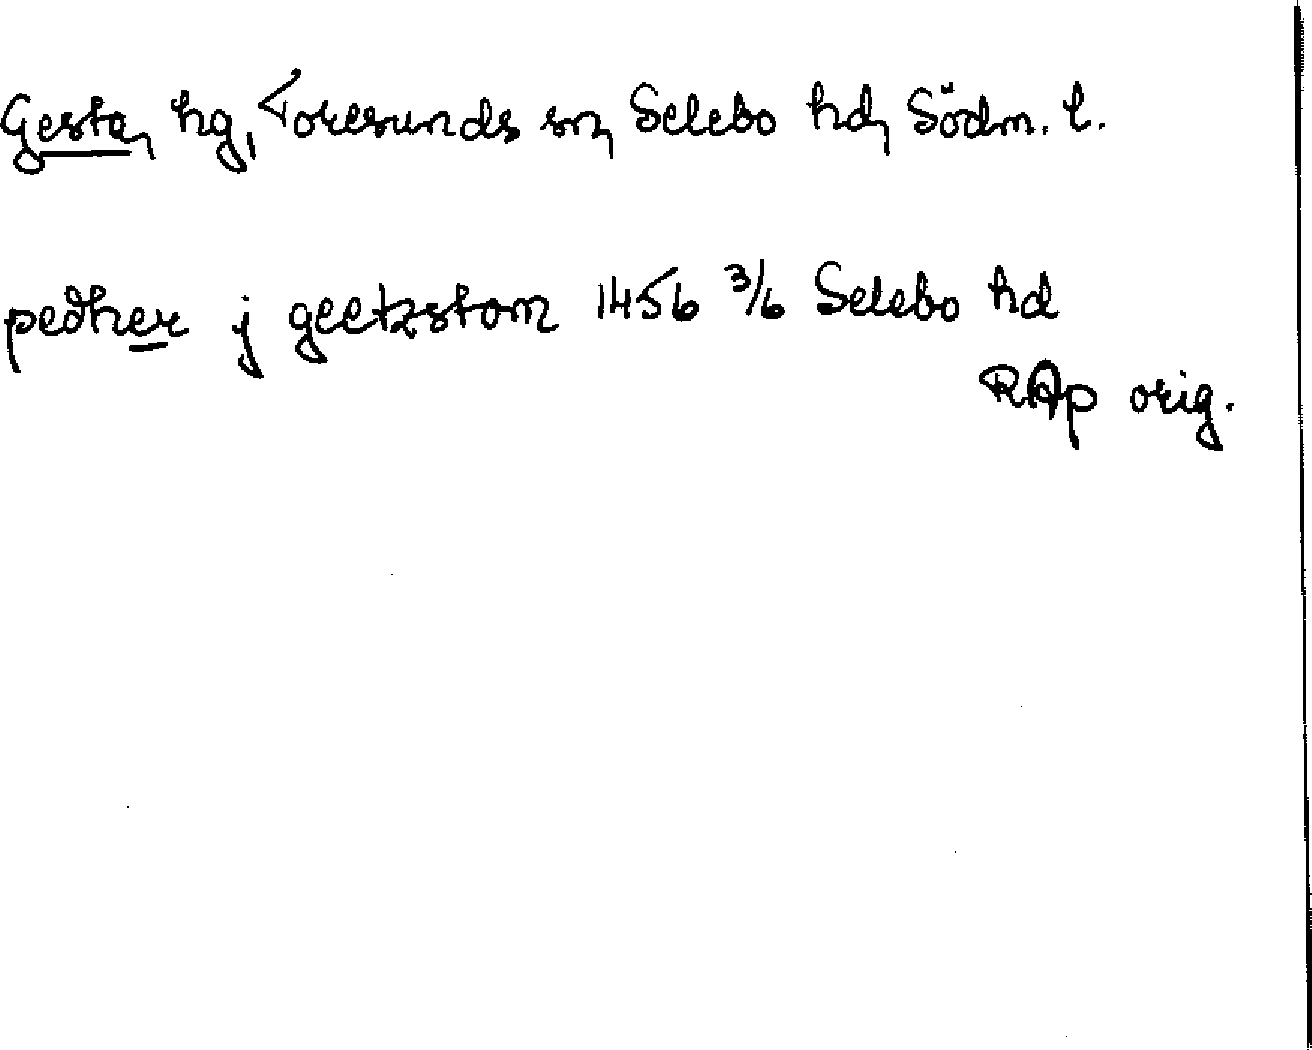 Gesta, hg, Toresunds sn, Selebo hd, Södm. l.
pedher j geetzstom 1456 3/6 Selebo hd
RAp orig.